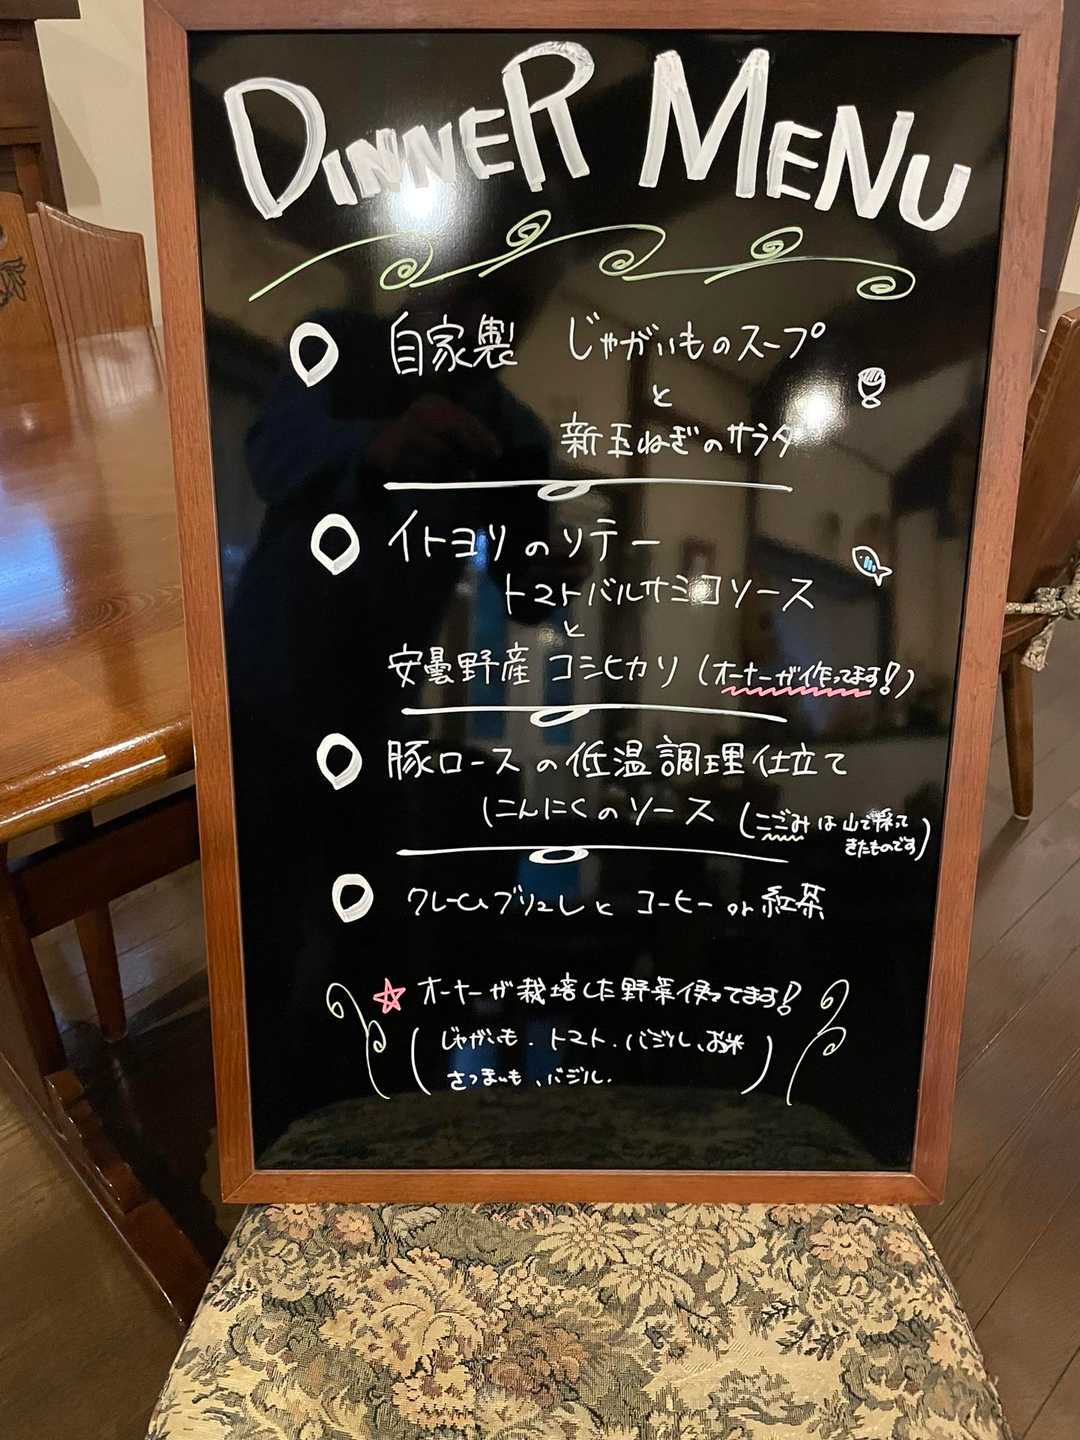 DINNER MENU
自家製 じゃがいものスープ
と
新玉ねぎのサラダ
イトヨリのソテー
トマトバルサミコソース
と
安曇野産 コシヒカリ (オーナーが作ってます!)
豚ロースの低温調理仕立て
にんにくのソース (こごみは山で採って
きたものです)
クレームブリュレと コーヒー or 紅茶
☆ オーナーが栽培した野菜使ってます!
(じゃがいも. トマト. バジル、お米
さつまいも、バジル.)